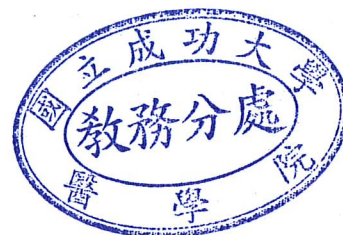 國立成功大學
教務分處
醫學院